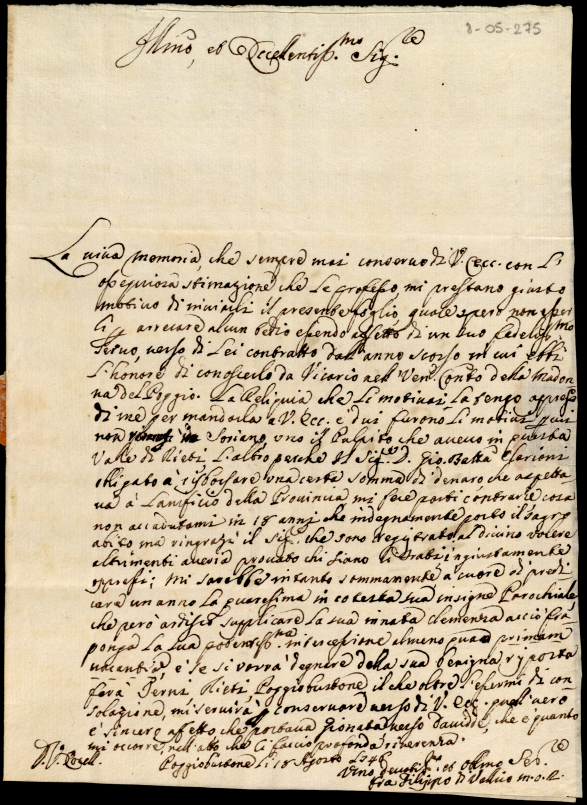 8-05-275
Illmo, et Eccellentiss.mo Sig.re
La viva memoria, che sempre mai conservo di V. Ecc. con Li
ossequiosa stimazione che Le professo, mi prestano giusto
motivo di inviarli il presente foglio, quale spero non esser
Li arrecare alcun tedio essendo effetto di un suo fedelis.mo
servo, verso di Lei contratto dall'anno scorso in cui ebbi
L'honore di conoscerlo da Vicario nell Ven. Conto della Madon
na del Poggio. La Reliquia che Li motivai La tengo appresso
di me per mandarla a V. Ecc. e dui furono Li motivi
non Soriano, uno il Pulpito che avevo in questa
Valle di Rieti L'altro perche Il Sig.re D. Gio. Batta
obligato a risborsare una certa somma di denaro che aspetta
va à Lanificio della Provincia mi fece
non accadutami in 18 anni che indegnamente porto il sagro
abito ma ringrazi il Sig.re che sono al Divino volere
altrimenti averia provato chi siano Li Frati ingiustamente
oppressi; Mi sarebbe intanto sommamente a cuore di predi
care un anno La quaresima in cotesta sua insigne Parochiale
che però ardisco supplicare La sua innata clemenza acciò fra
ponga La sua potentiss.ma intercessione almeno
vacantia, e se si vorrà degnare della sua benigna risposta
farà Terni Rieti Poggiobustone il che oltre l'essermi di con
solazione, mi servirà conservare verso di V. Ecc. quell vero
e sincero affetto che portava Gionata verso Davidde, che è quanto
mi occorre, nell'atto che Li faccio profonda riverenza.
D. V. Eccell.
Poggiobustone Li 18 Agosto 1746
Umo devotis.mo et oblmo Ser.re
Fra Filippo di m.o.R.